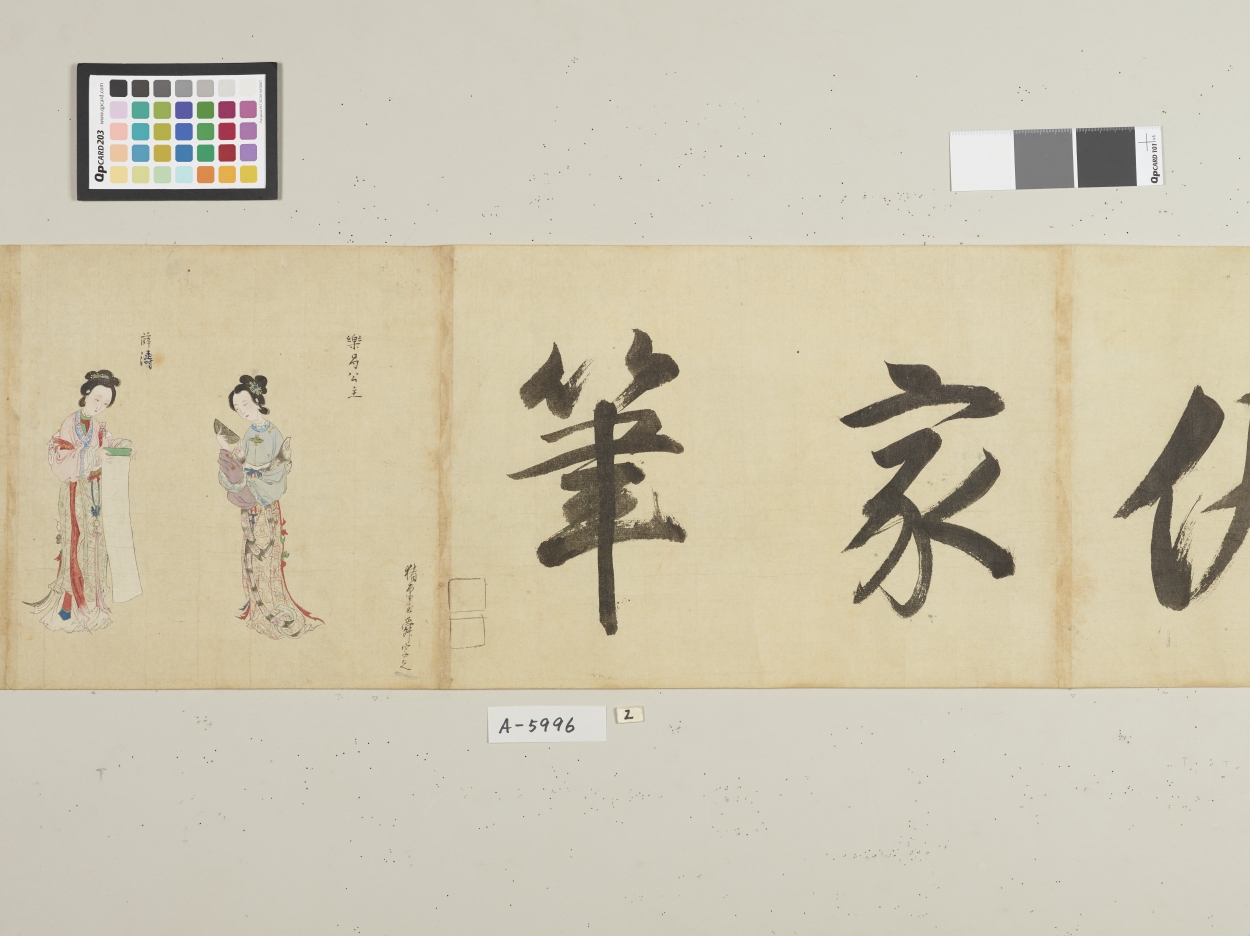 QpCARD 203
www.qpcard.com
QpCARD 101
家筆
樂昌公主
薛濤
A-5996
2